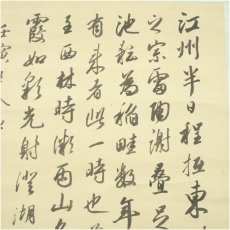 江州半日程極東
之宗雷陶謝疊足
池耘為稲畦数年
有来者此一時也
至西林時漸雨山
霞如彩光射澄湖
壬寅